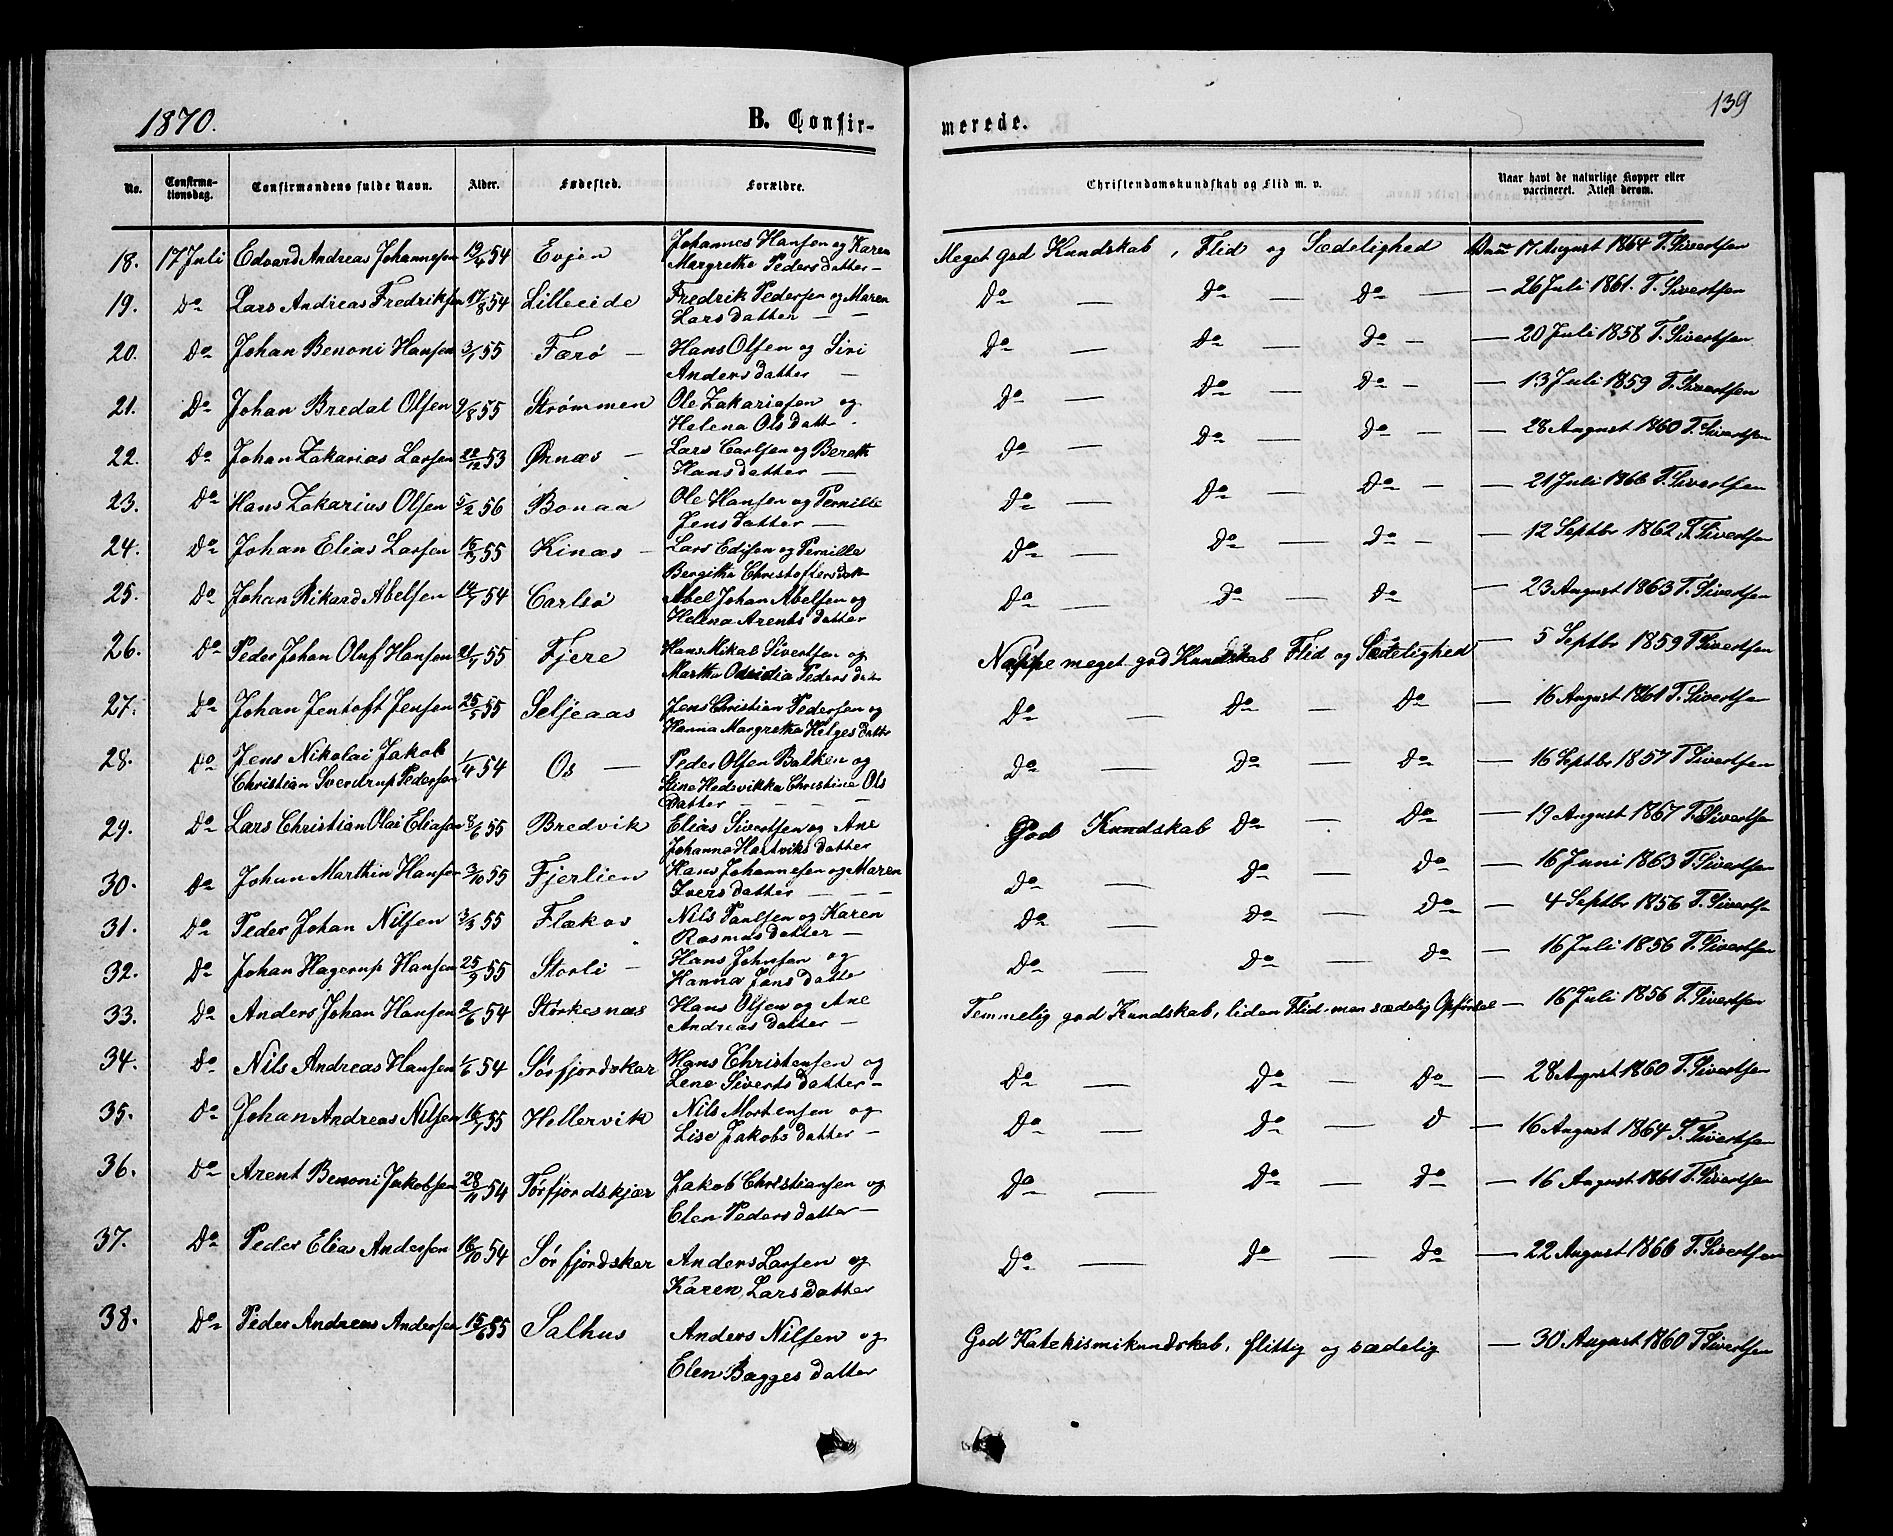 139
1870.
B. Confir-
merede.
No.
Confirma-
tionsdag.
Confirmandens fulde Navn.
Alder.
Fødested.
Forældre.
Christendomskundskab og Flid m. v.
Naar havt de naturlige Kopper eller
vaccineret. Attest derom.
18. 17 Juli Edvard Andreas Johannesen 19/4 54 Evjen Johannes Hansen og Karen
Margrethe Pedersdatter — Meget god Kundskab, Flid og Sædelighed 17 August 1864 T. Sivertsen
19. Do Lars Andreas Fredriksen 17/8 54 Lilleeide Fredrik Pedersen og Maren
Larsdatter — — Do — Do — Do — — 26 Juli 1861. T. Sivertsen
20. Do Johan Benoni Hansen 3/7 55 Færø — Hans Olsen og Siri
Andersdatter — Do — Do — Do — — 20 Juli 1858 T. Sivertsen
21. Do Johan Bredal Olsen 9/8 55 Strømmen Ole Zakariasen og
Helena Olsdatt. Do — Do — Do — — 13 Juli 1859 T. Sivertsen
22. Do Johan Zakarias Larsen 22/12 53 Ørnæs — Lars Carlsen og Bereth
Hansdatter — Do — Do — Do — — 28 August 1860 T. Sivertsen
23. Do Hans Zakarius Olsen 5/2 56 Bonaa Ole Hansen og Pernille
Jensdatter — Do — Do — Do — — 21 Juli 1866 T. Sivertsen
24. Do Johan Elias Larsen 55 Kinæs — Lars Edisen og Pernille
Bergitha Christoffersdatt Do — Do — Do — — 12 Septbr 1862 T. Sivertsen
25. Do Johan Rikard Abelsen 14/7 54 Carlsø Abel Johan Abelsen og
Helena Arentsdatter Do — Do — Do — 23 August 1863 T. Sivertsen
26. Do Peder Johan Oluf Hansen 21/7 55 Fjere Hans Mikal Sivertsen og
Martha Pedersdatr Næppe meget god Kundskab Flid og Sædelighed — 5 Septbr 1859 T. Sivertsen
27. Do Johan Jentoft Jensen 25/5 55 Seljeaas Jens Christian Pedersen og
Hanna Margretha Helgesdatter Do — Do — Do — 16 August 1861 T. Sivertsen
28. Do Jens Nikolai Jakob
Christian Sverdrup Pedersen 1/4 54 Os — Peder Olsen Balken og
Stine Hedevikka Christine Ols
datter — — — Do — Do — Do — 16 Septbr 1857 T Sivertsen
29. Do Lars Christian Olai Eliasen 8/6 55 Bredvik Elias Sivertsen og Ane
Johanna Hartviksdatter God Kundskab Do — Do — 19 August 1867 T. Sivertsen
30. Do Johan Marthin Hansen 3/10 55 Fjerlien Hans Johannesen og Maren
Iversdatter — — — Do — Do — Do — 16 Juni 1863 T. Sivertsen
31. Do Peder Johan Nilsen 3/3 55 Flækos Nils Paulsen og Karen
Rasmusdatter — Do — Do — Do — 4 Septbr 1856 T. Sivertse
32. Do Johan Hagerup Hansen 25/9 55 Storli — Hans Johnsen og
Hanna Jensdatter Do — Do — Do — 16 Juli 1856 T. Sivertsen
33. Do Anders Johan Hansen 2/6 54 Storkesnæs Hans Olsen og Ane
Andreasdatter — Temmelig god Kundskab, liden Flid, men sædelig Opførsel — 16 Juli 1856 T. Sivertsen
34. Do Nils Andreas Hansen 1/6 54 Sørfjordskar Hans Christensen og
Lene Sivertsdatter — Do — Do — Do — 28 August 1860 T. Sivertsen
35. Do Johan Andreas Nilsen 16/7 55 Hellervik Nils Mortensen og
Lise Jakobsdatter — Do — Do — D — 16 August 1864 T. Sivertsen
36. Do Arent Benoni Jakobsen 28/11 54 Sørfjordskjær Jakob Christiansen og
Elen Pedersdatter — Do — Do — Do — 16 August 1861 T. Sivertsen
37. Do Peder Elias Andersen 16/10 54 Sørfjordskar Anders Larsen og
Karen Larsdatter Do — Do — Do — 22 August 1866 T. Sivertsen
38. Do Peder Andreas Andersen 15/6 55 Salhus Anders Nilsen og
Elen Baggesdatter God Katekismikundskab, flittig og sædelig — 30 August 1860 T Sivertsen